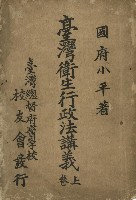 國府小平著
臺灣衛生行政法講義 上卷
臺灣總督府醫學校
校友會發行